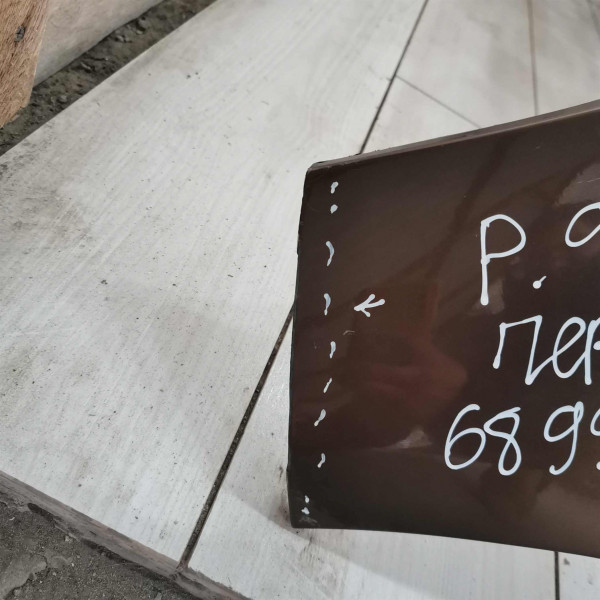 Р. 9
пер
6899